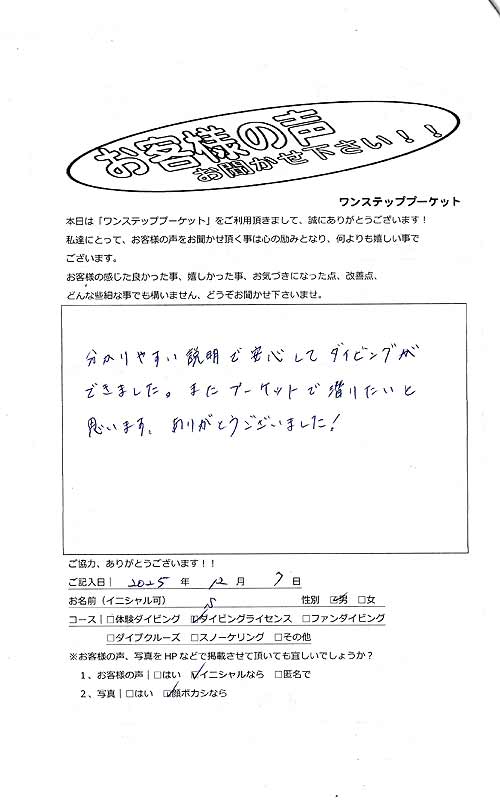 お客様の声
お聞かせ下さい！！
ワンステッププーケット
本日は「ワンステッププーケット」をご利用頂きまして、誠にありがとうございます！
私達にとって、お客様の声をお聞かせ頂く事は心の励みとなり、何よりも嬉しい事で
ございます。
お客様の感じた良かった事、嬉しかった事、お気づきになった点、改善点、
どんな些細な事でも構いません、どうぞお聞かせ下さいませ。
分かりやすい説明で安心してダイビングが
できました。またプーケットで潜りたいと
思います。ありがとうございました！
ご協力、ありがとうございます！！
ご記入日｜2025 年 12 月 7 日
お名前（イニシャル可） S 性別 ☑男 □女
コース｜□体験ダイビング ☑ダイビングライセンス □ファンダイビング
□ダイブクルーズ □スノーケリング □その他
※お客様の声、写真をHPなどで掲載させて頂いても宜しいでしょうか？
1、お客様の声｜□はい ☑イニシャルなら □匿名で
2、写真｜□はい ☑顔ボカシなら